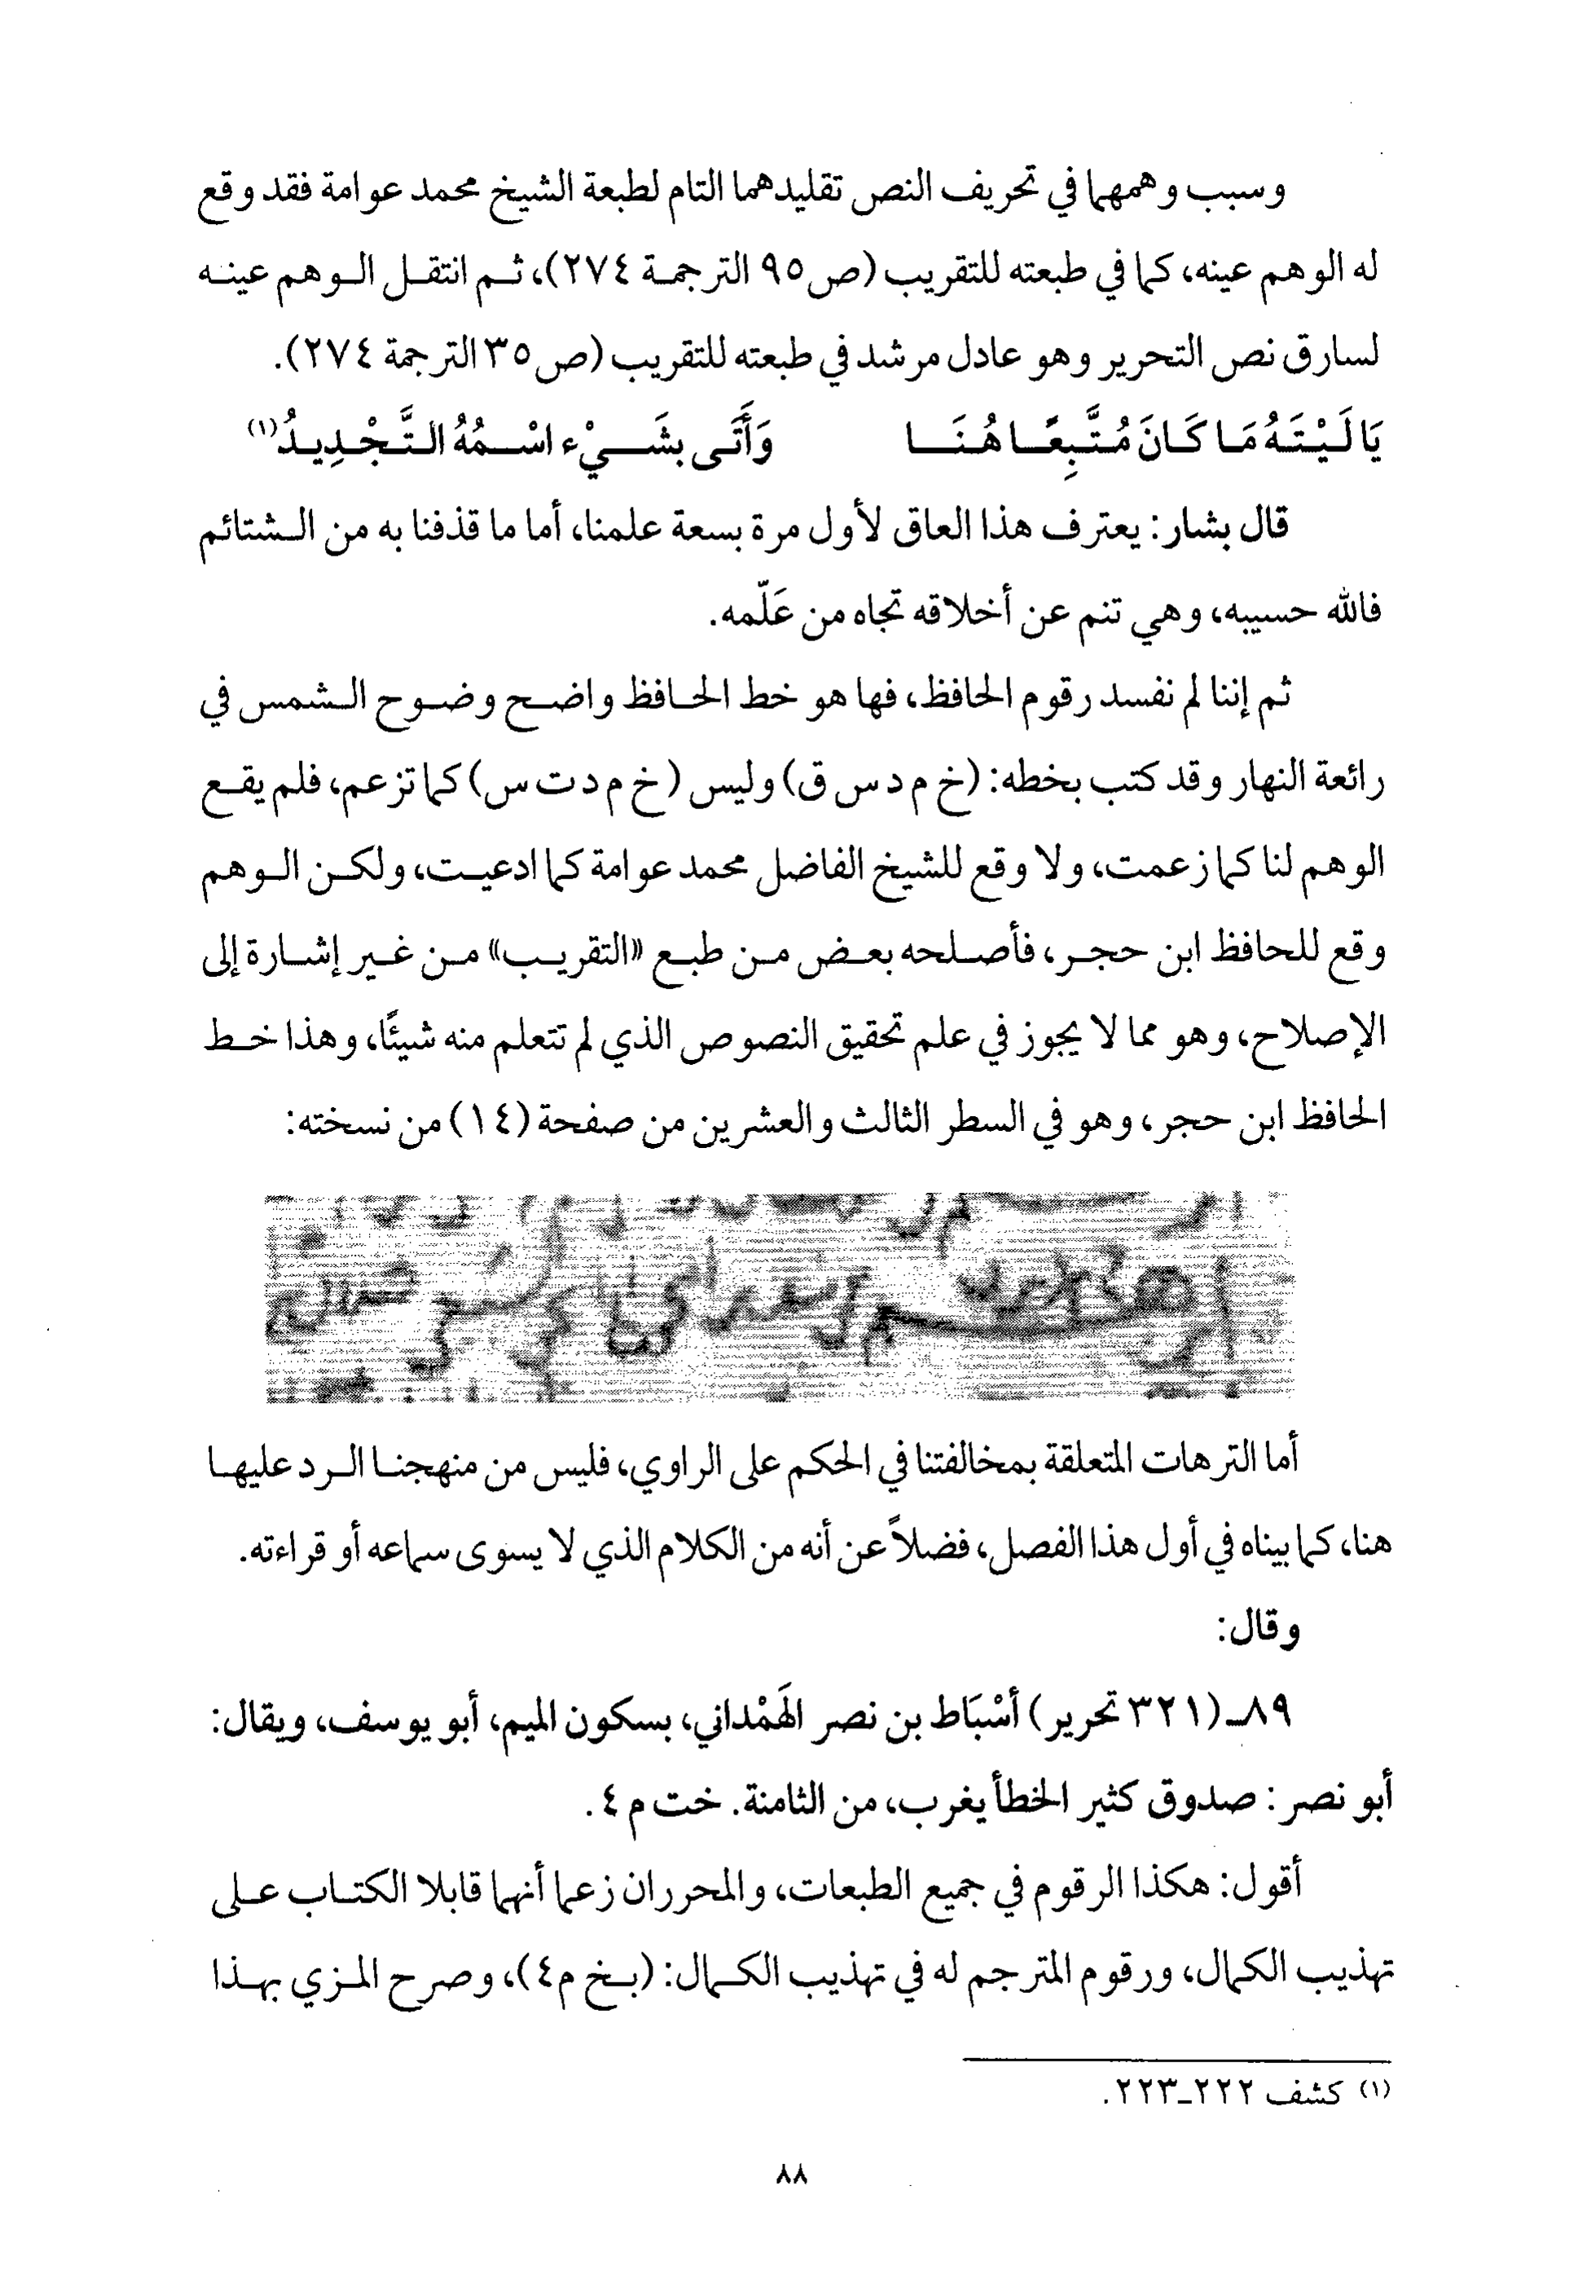 وسبب وهمهما في تحريف النص تقليدهما التام لطبعة الشيخ محمد عوامة فقد وقع
له الوهم عينه، كما في طبعته للتقريب (ص٩٥ الترجمة ٢٧٤)، ثم انتقل الوهم عينه
لسارق نص التحرير وهو عادل مرشد في طبعته للتقريب (ص٣٥ الترجمة ٢٧٤).
يَا لَيْتَهُ مَا كَانَ مُتَّبِعًا هُنَا وَأَتَى بشَيْء اسْمُهُ التَّجْدِيدُ(١)
قال بشار: يعترف هذا العاق لأول مرة بسعة علمنا، أما ما قذفنا به من الشتائم
فالله حسيبه، وهي تنم عن أخلاقه تجاه من عَلّمه.
ثم إننا لم نفسد رقوم الحافظ، فها هو خط الحافظ واضح وضوح الشمس في
رائعة النهار وقد كتب بخطه: (خ م د س ق) وليس (خ م د ت س) كما تزعم، فلم يقع
الوهم لنا كما زعمت، ولا وقع للشيخ الفاضل محمد عوامة كما ادعيت، ولكن الوهم
وقع للحافظ ابن حجر، فأصلحه بعض من طبع «التقريب» من غير إشارة إلى
الإصلاح، وهو مما لا يجوز في علم تحقيق النصوص الذي لم تتعلم منه شيئًا، وهذا خط
الحافظ ابن حجر، وهو في السطر الثالث والعشرين من صفحة (١٤) من نسخته:
أما الترهات المتعلقة بمخالفتنا في الحكم على الراوي، فليس من منهجنا الرد عليها
هنا، كما بيناه في أول هذا الفصل، فضلاً عن أنه من الكلام الذي لا يسوى سماعه أو قراءته.
وقال:
٨٩ـ (٣٢١ تحرير) أسْبَاط بن نصر الهَمْداني، بسكون الميم، أبو يوسف، ويقال:
أبو نصر: صدوق كثير الخطأ يغرب، من الثامنة. خت م ٤.
أقول: هكذا الرقوم في جميع الطبعات، والمحرران زعما أنهما قابلا الكتاب على
تهذيب الكمال، ورقوم المترجم له في تهذيب الكمال: (بخ م٤)، وصرح المزي بهذا
(١) كشف ٢٢٢ـ٢٢٣.
٨٨